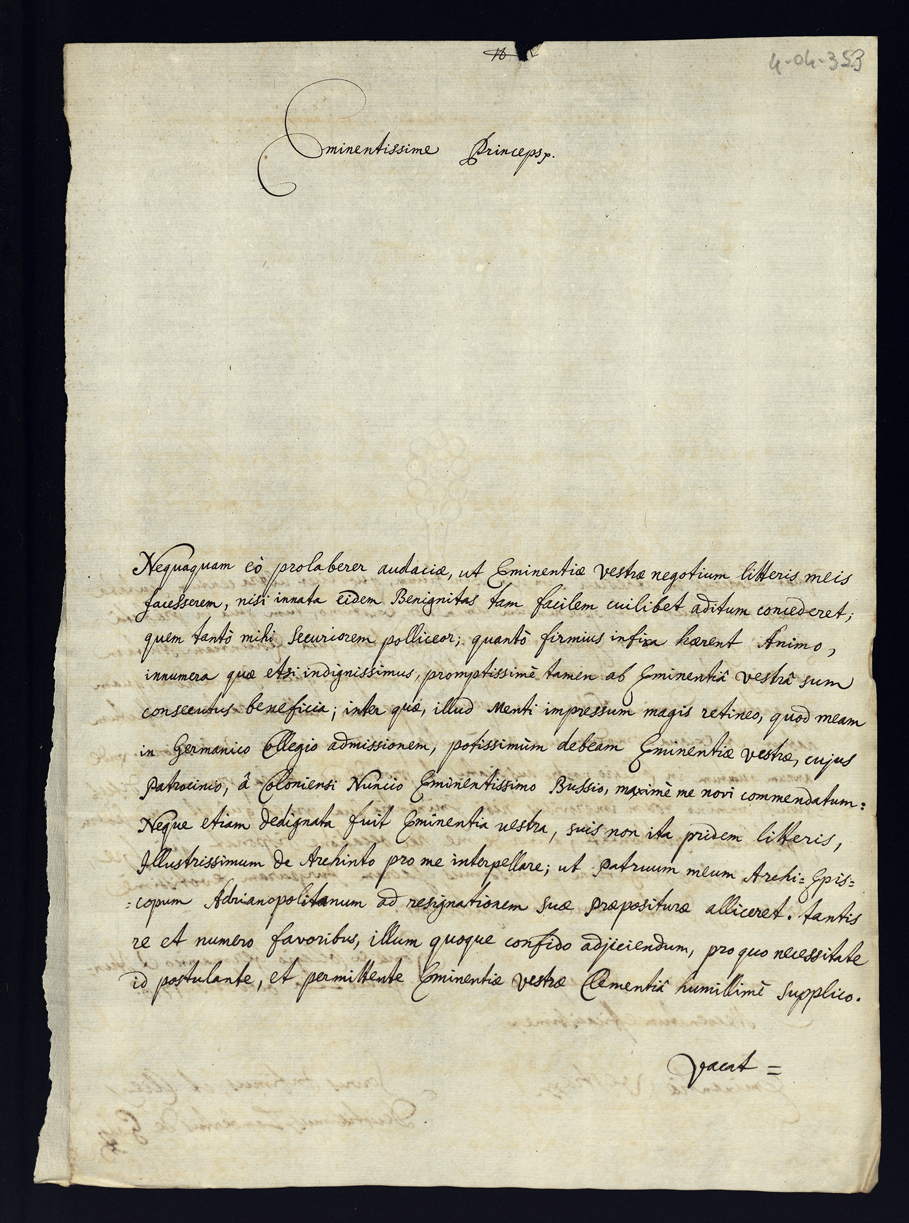 4-04-353
Eminentissime Princeps
Nequaquam eò prolaberer audaciæ, ut Eminentiæ Vestræ negotium litteris meis
facesserem, nisi innata eidem Benignitas tam facilem cuilibet aditum concederet;
quem tantò mihi securiorem polliceor; quantò firmius infixa hærent Animo,
innumera quæ etsi indignissimus, promptissimè tamen ab Eminentiâ Vestrâ sum
consecutus beneficia; inter quæ, illud Menti impressum magis retineo, quod meam
in Germanico Collegio admissionem, potissimùm debeam Eminentiæ Vestræ, cujus
Patrocinio, â Coloniensi Nuncio Eminentissimo Bussio, maximè me novi commendatum:
Neque etiam dedignata fuit Eminentia vestra, suis non ita pridem litteris,
Illustrissimum de Archinto pro me interpellare; ut Patruum meum Archi=Epis=
=copum Adrianopolitanum ad resignationem suæ Præposituræ alliceret. tantis
re et numero favoribus, illum quoque confido adjiciendum, pro quo necessitate
id postulante, et permittente Eminentiæ Vestræ Clementiâ humillimè supplico.
Vacat =